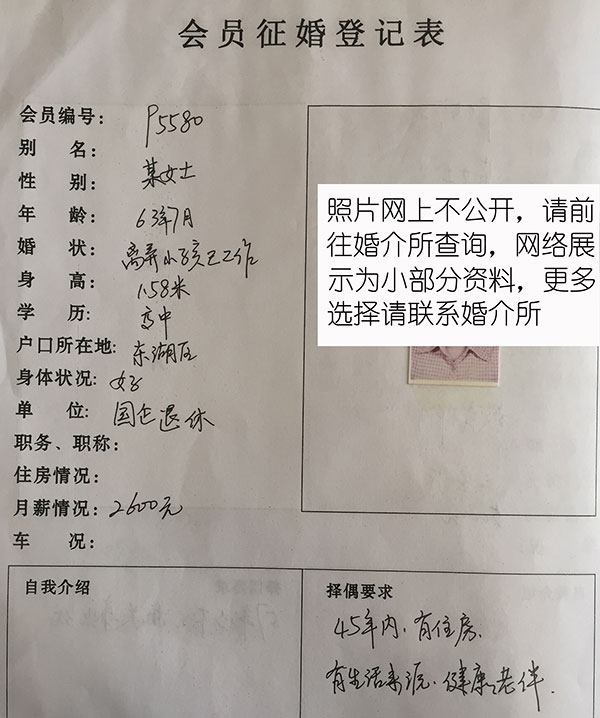 会员征婚登记表
会员编号: P5580
别 名:
性 别: 某女士
年 龄: 63年7月
婚 状: 离异小孩已工作
身 高: 1.58米
学 历: 高中
户口所在地: 东湖区
身体状况: 好
单 位: 国企退休
职务、职称:
住房情况:
月薪情况: 2600元
车 况:
照片网上不公开，请前
往婚介所查询，网络展
示为小部分资料，更多
选择请联系婚介所
自我介绍
择偶要求
45年内、有住房、
有生活来源、健康老伴.